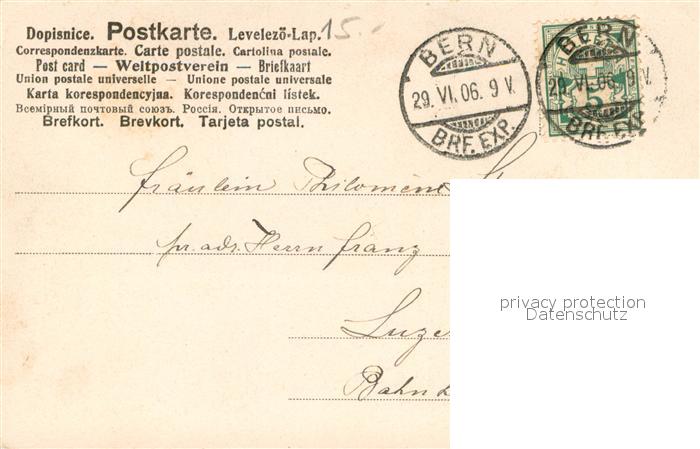 Dopisnice. Postkarte. Levelező-Lap. 15.-
Correspondenzkarte. Carte postale. Cartolina postale.
Post card — Weltpostverein — Briefkaart
Union postale universelle — Unione postale universale
Karta korespondencyjna. Korespondenční lístek.
Всемірный почтовый союзъ. Россія. Открытое письмо.
Brefkort. Brevkort. Tarjeta postal.
BERN
29. VI. 06. 9 V.
BRF. EXP.
BERN
29. VI. 06. 9 V.
BRF. EXP.
5
Fräulein Philomene
pr. adr. Herrn Franz
Luze
Bahn
privacy protection
Datenschutz